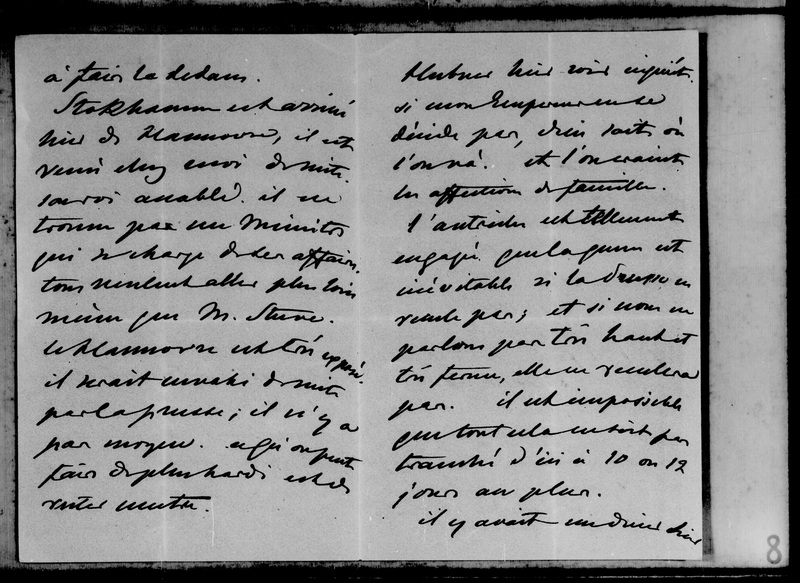 à faire la dedans.
Stokhausen est arrivé
hier de Hannovre, il est
venu chez moi de suite.
son roi accablé. il ne
trouve pas un Ministre
qui se charge de ses affaires.
tous veulent aller plus loin
même que M. Stuve.
le Hannovre est très exposé.
il serait envahi de suite
par la prusse; il n'y a
pas moyen. ce qu'on peut
faire de plus hardi est de
rester neutre.
Hubner hier soir inquiet.
si mon Empereur ne se
décide pas, dieu sait où
l'on va. et l'on craint
les affections de famille.
l'autriche est tellement
engagée que la guerre est
inévitable si la Prusse ne
recule pas; et si nous ne
parlons pas très haut et
très ferme, elle ne reculera
pas. il est impossible
que tout cela ne soit pas
tranché d'ici à 10 ou 12
jours au plus.
il y avait un diner hier
8